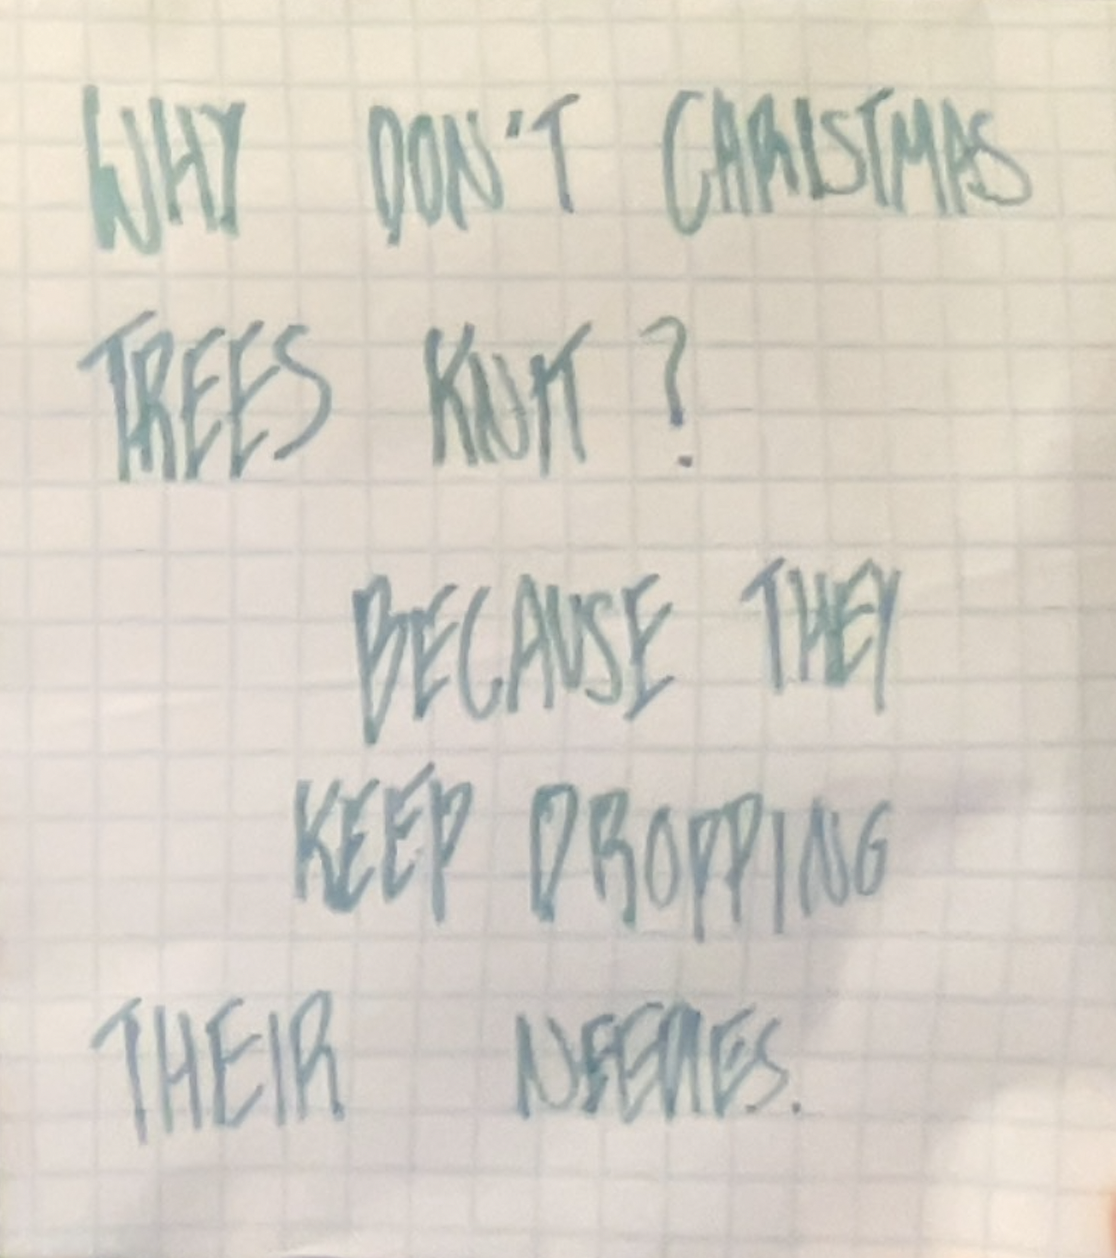 WHY DON'T CHRISTMAS
TREES KNIT ?
BECAUSE THEY
KEEP DROPPING
THEIR NEEDLES.